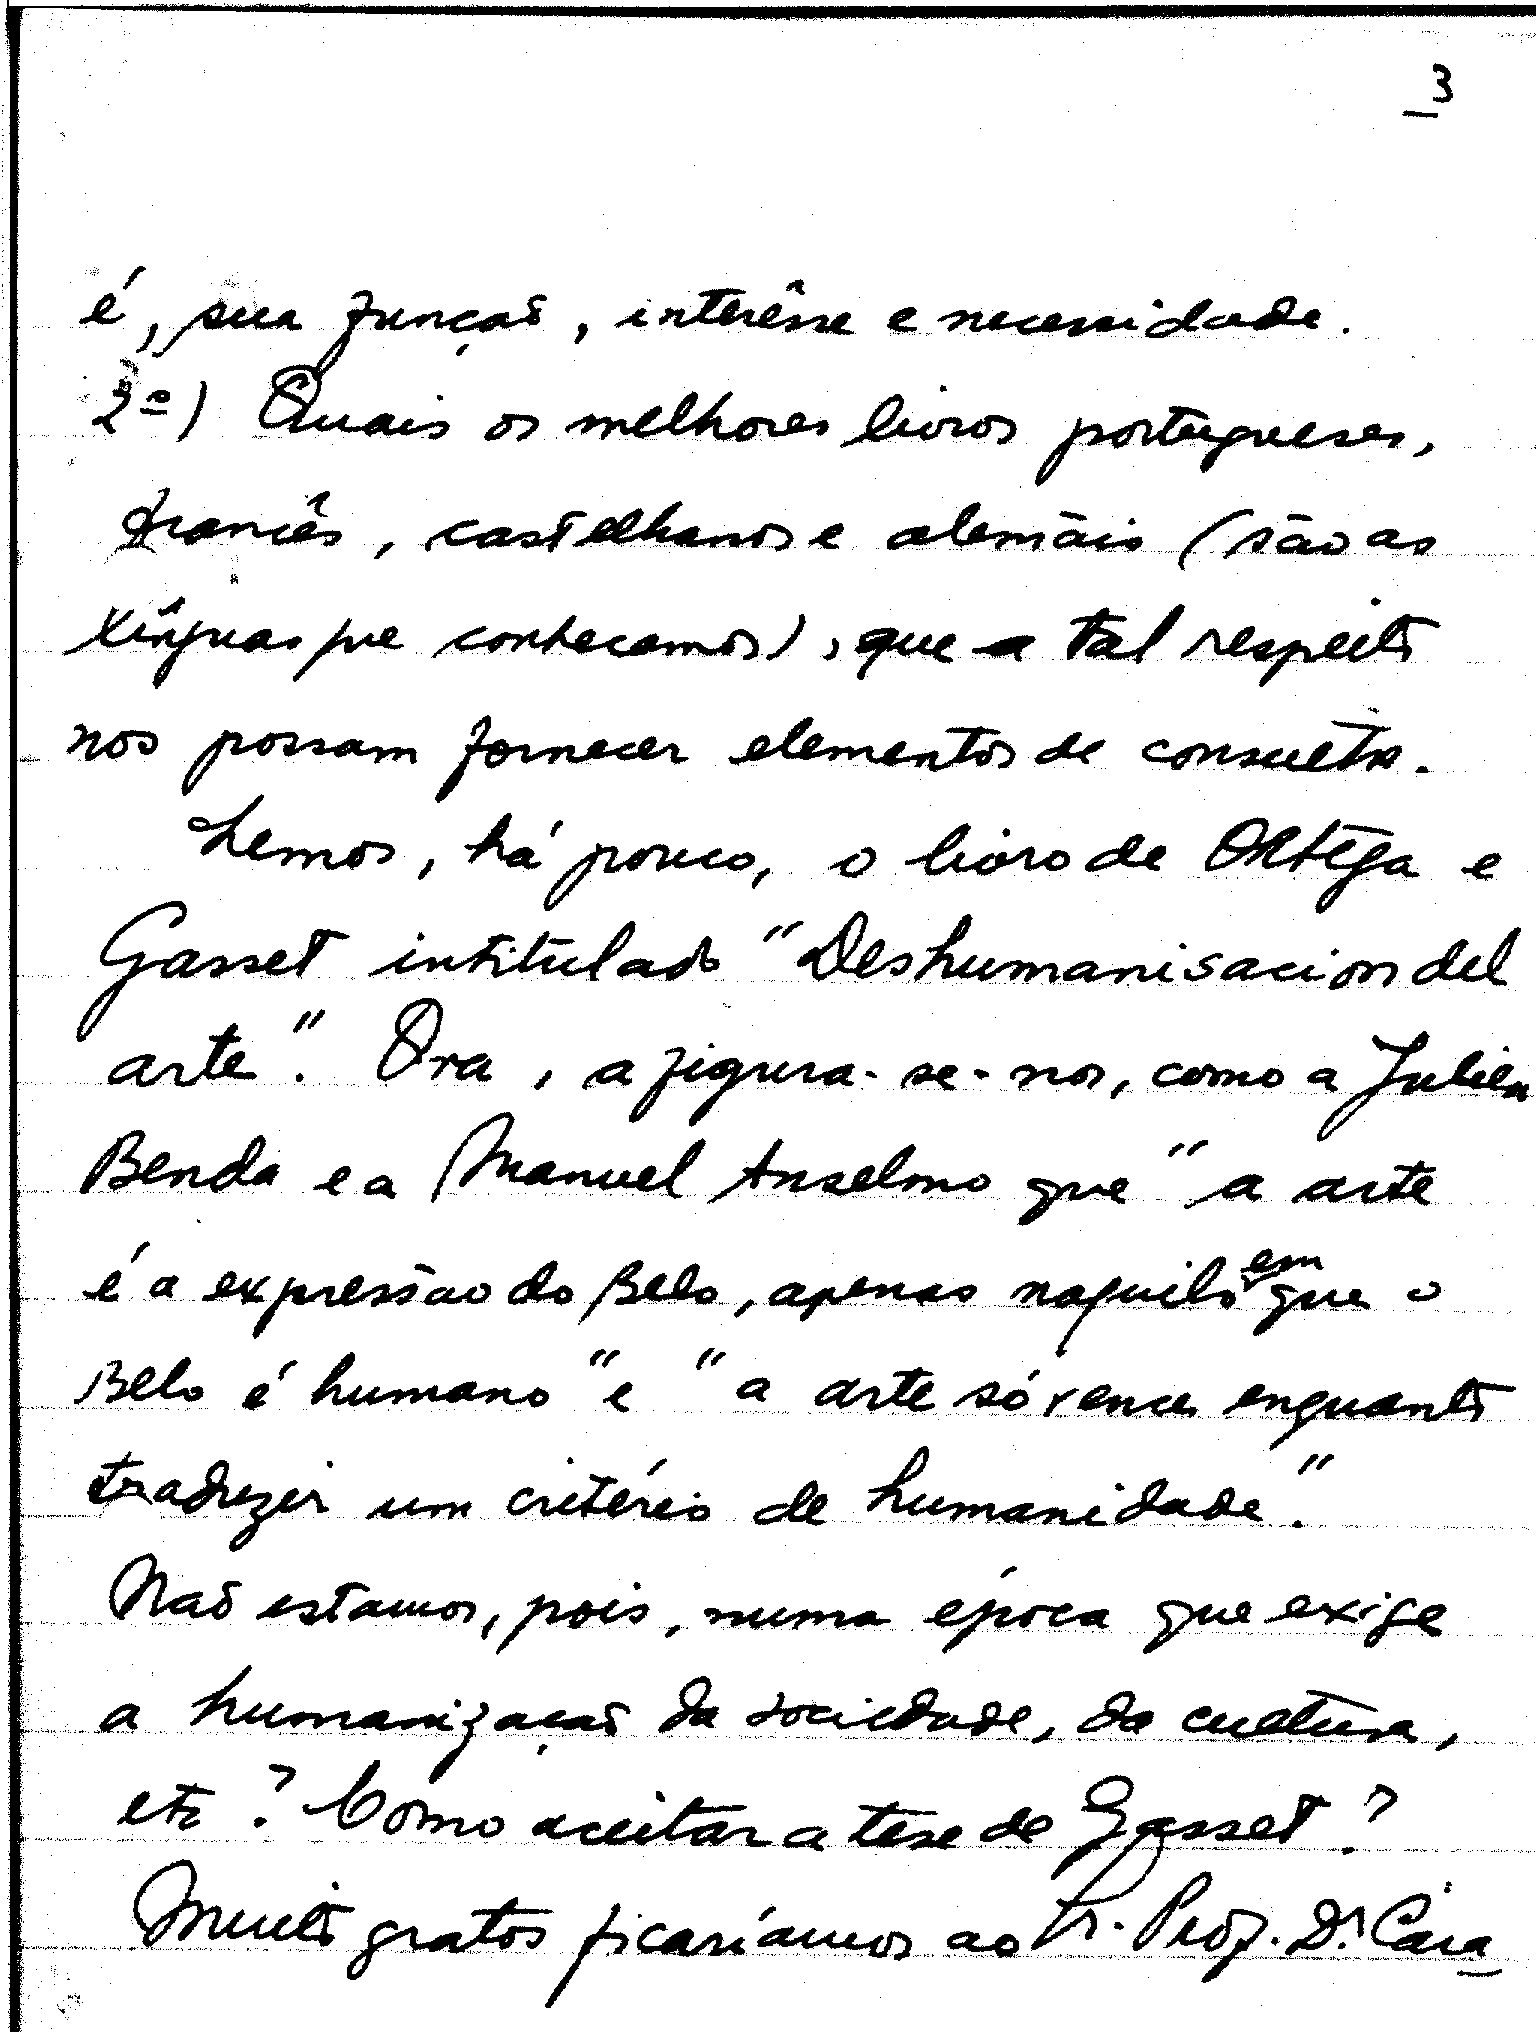 3
é, sua função, interêsse e necessidade.
2º) Quais os melhores livros portugueses,
francês, castelhanos e alemãis (são as
línguas que conhecemos), que a tal respeito
nos possam fornecer elementos de consulta.
Lemos, há pouco, o livro de Ortega e
Gasset intitulado "Deshumanisacion del
arte". Ora, afigura-se-nos, como a Julien
Benda e a Manuel Anselmo que "a arte
é a expressão do Belo, apenas naquilo em que o
Belo é humano" e "a arte só vence enquanto
traduzir um critério de humanidade."
Não estamos, pois, numa época que exige
a humanização da sociedade, da cultura,
etc? Como aceitar a tese de Gasset?
Muito gratos ficaríamos ao Sr. Prof. Dr. Cara